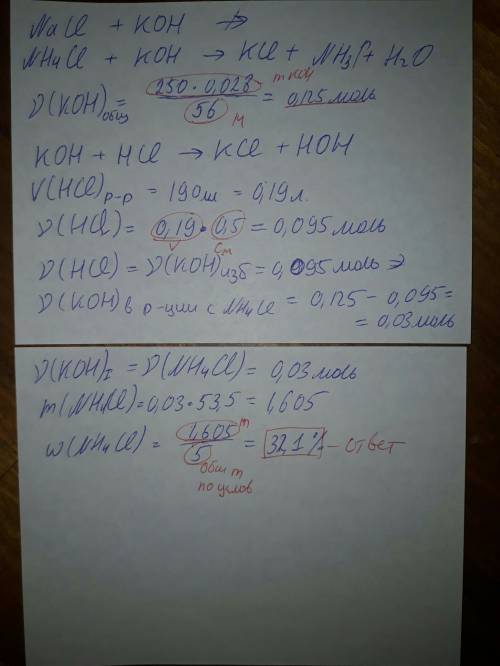 NaCl + KOH ↛
NH4Cl + KOH → KCl + NH3↑ + H2O
ν(KOH)общ = 250 · 0,028 / 56 = 0,125 моль
m KOH
M
KOH + HCl → KCl + HOH
V(HCl)р-р = 190 мл = 0,19 л.
ν(HCl) = 0,19 · 0,5 = 0,095 моль
V Cм
ν(HCl) = ν(KOH)изб = 0,095 моль ⇒
ν(KOH) в р-ции с NH4Cl = 0,125 - 0,095 =
= 0,03 моль
ν(KOH)I = ν(NH4Cl) = 0,03 моль
m(NH4Cl) = 0,03 · 53,5 = 1,605
ω(NH4Cl) = 1,605 / 5 = 32,1% - ответ
m
общ m
по услов